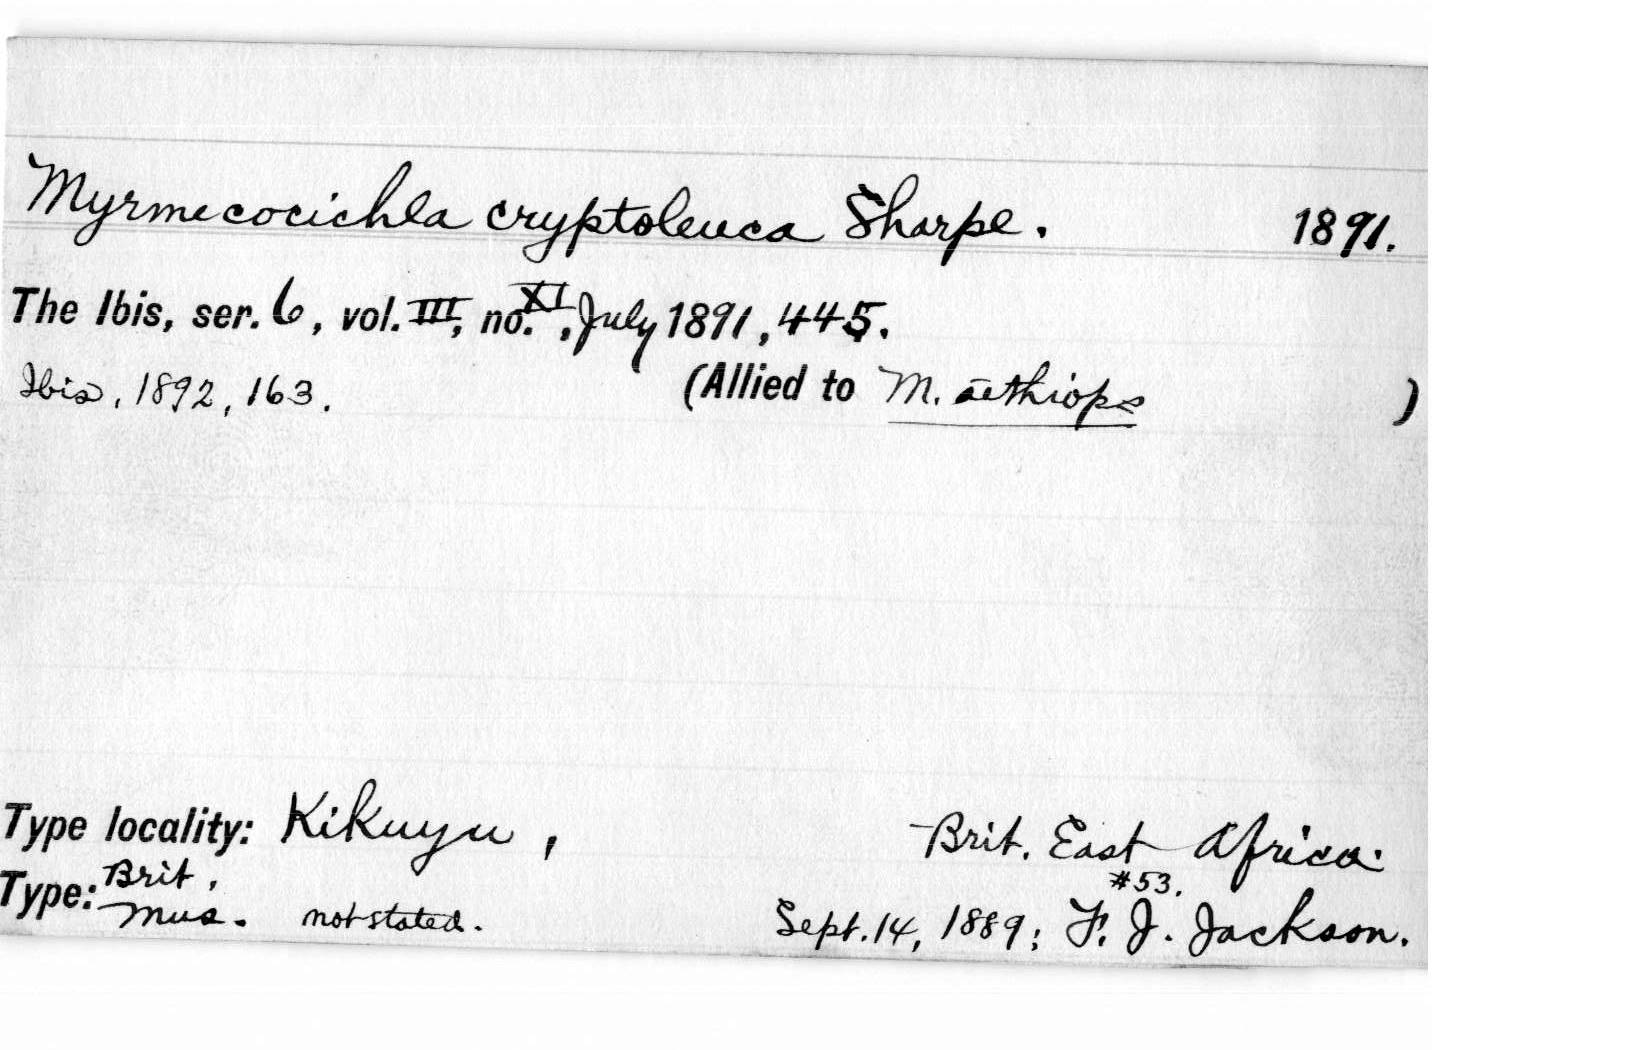 Myrmecocichla cryptoleuca Sharpe. 1891.
The Ibis, ser. 6, vol. III, no. XI, July 1891, 445.
Ibis, 1892, 163. (Allied to M. aethiops )
Type locality: Kikuyu, Brit. East Africa:
Type: Brit. Mus. not stated. #53.
Sept. 14, 1889; F. J. Jackson.